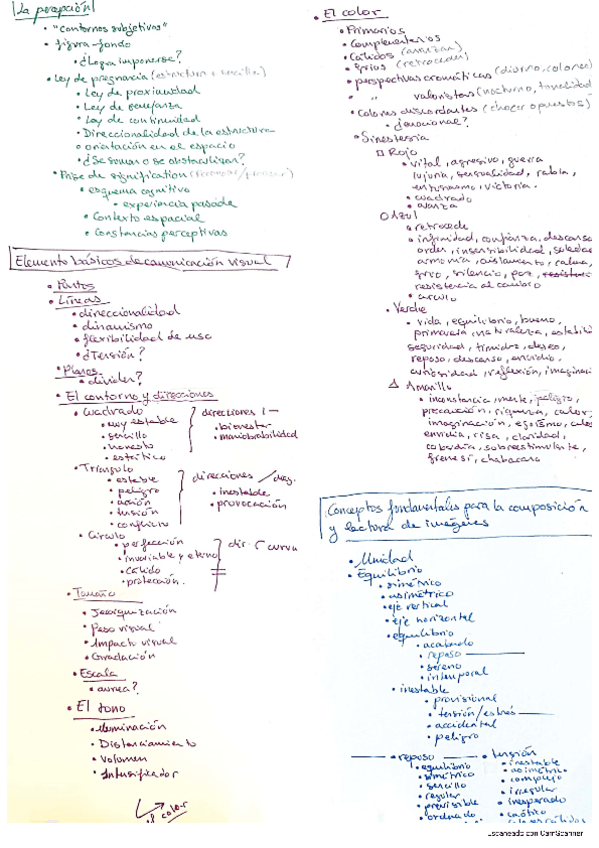 La percepción
• "Contornos subjetivos"
• figura-fondo
• ¿Logra imponerse?
• Ley de pregnancia (estructura + sencilla)
• Ley de proximidad
• Ley de semejanza
• Ley de continuidad
• Direccionalidad de la estructura
• orientación en el espacio
• ¿Se suman o se obstaculizan?
• Fase de signification
• esquema cognitivo
• experiencia pasada
• Contexto espacial
• Constancias perceptivas
Elementos básicos de comunicación visual
• Puntos
• Líneas
• direccionalidad
• dinamismo
• flexibilidad de uso
• ¿Tensión?
• Planos
• dividir?
• El contorno y direcciones
• Cuadrado
• muy estable
• sencillo
• honesto
• estático
direcciones | —
• bienestar
• maniobrabilidad
• Triángulo
• estable
• peligro
• acción
• tensión
• conflicto
direcciones / diag.
• inestable
• provocación
• Círculo
• perfección
• invariable y eterno
• cálido
• protección.
dir. curva
• Tamaño
• Jerarquización
• Peso visual
• Impacto visual
• Gradación
• Escala
• aurea?
• El tono
• Iluminación
• Distanciamiento
• Volumen
• Intensificador
El color
• El color
• Primarios
• Complementarios
• Cálidos (avanzan)
• fríos (retroceden)
• perspectivas cromáticas (diurno, colores)
" " valoristas (nocturno, tonalidad
• Colores discordantes (chocar opuestos)
• ¿emocional?
• Sinestesia
□ Rojo
• vital, agresivo, guerra
lujuria, sensualidad, rabia,
entusiasmo, victoria.
• cuadrado
• avanza
○ Azul
• retrocede
• infinidad, confianza, descanso
orden, insensibilidad, soledad
armonía, aislamiento, calma,
frío, silencio, paz,
resistencia al cambio
• círculo
• Verde
• vida, equilibrio, bueno,
primavera, naturaleza, estabili
seguridad, timidez, deseo,
reposo, descanso, envidia,
curiosidad, reflexión, imaginaci
△ Amarillo
• inconstancia, muerte, peligro,
precaución, riqueza, calor,
imaginación, egoísmo,
envidia, risa, claridad,
cobardía, sobreestimulante,
frenesí, chabacano
Conceptos fundamentales para la composición
y lectura de imágenes
• Unidad
• Equilibrio
• simétrico
• asimétrico
• eje vertical
• eje horizontal
• equilibrio
• acabado
• reposo
• sereno
• intemporal
• inestable
• provisional
• tensión/estrés
• accidental
• peligro
• reposo
• equilibrio
• simétrico
• sencillo
• regular
• previsible
• ordenado
• tensión
• inestable
• asimétric.
• complejo
• irregular
• inesperado
• caótico
Escaneado con CamScanner